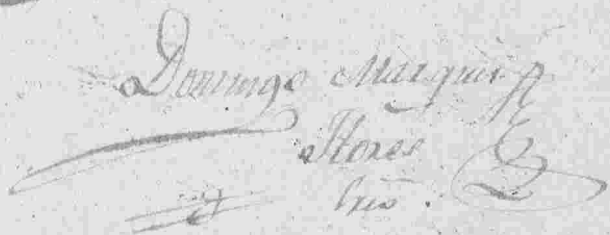 Domingo Marquez
Flores